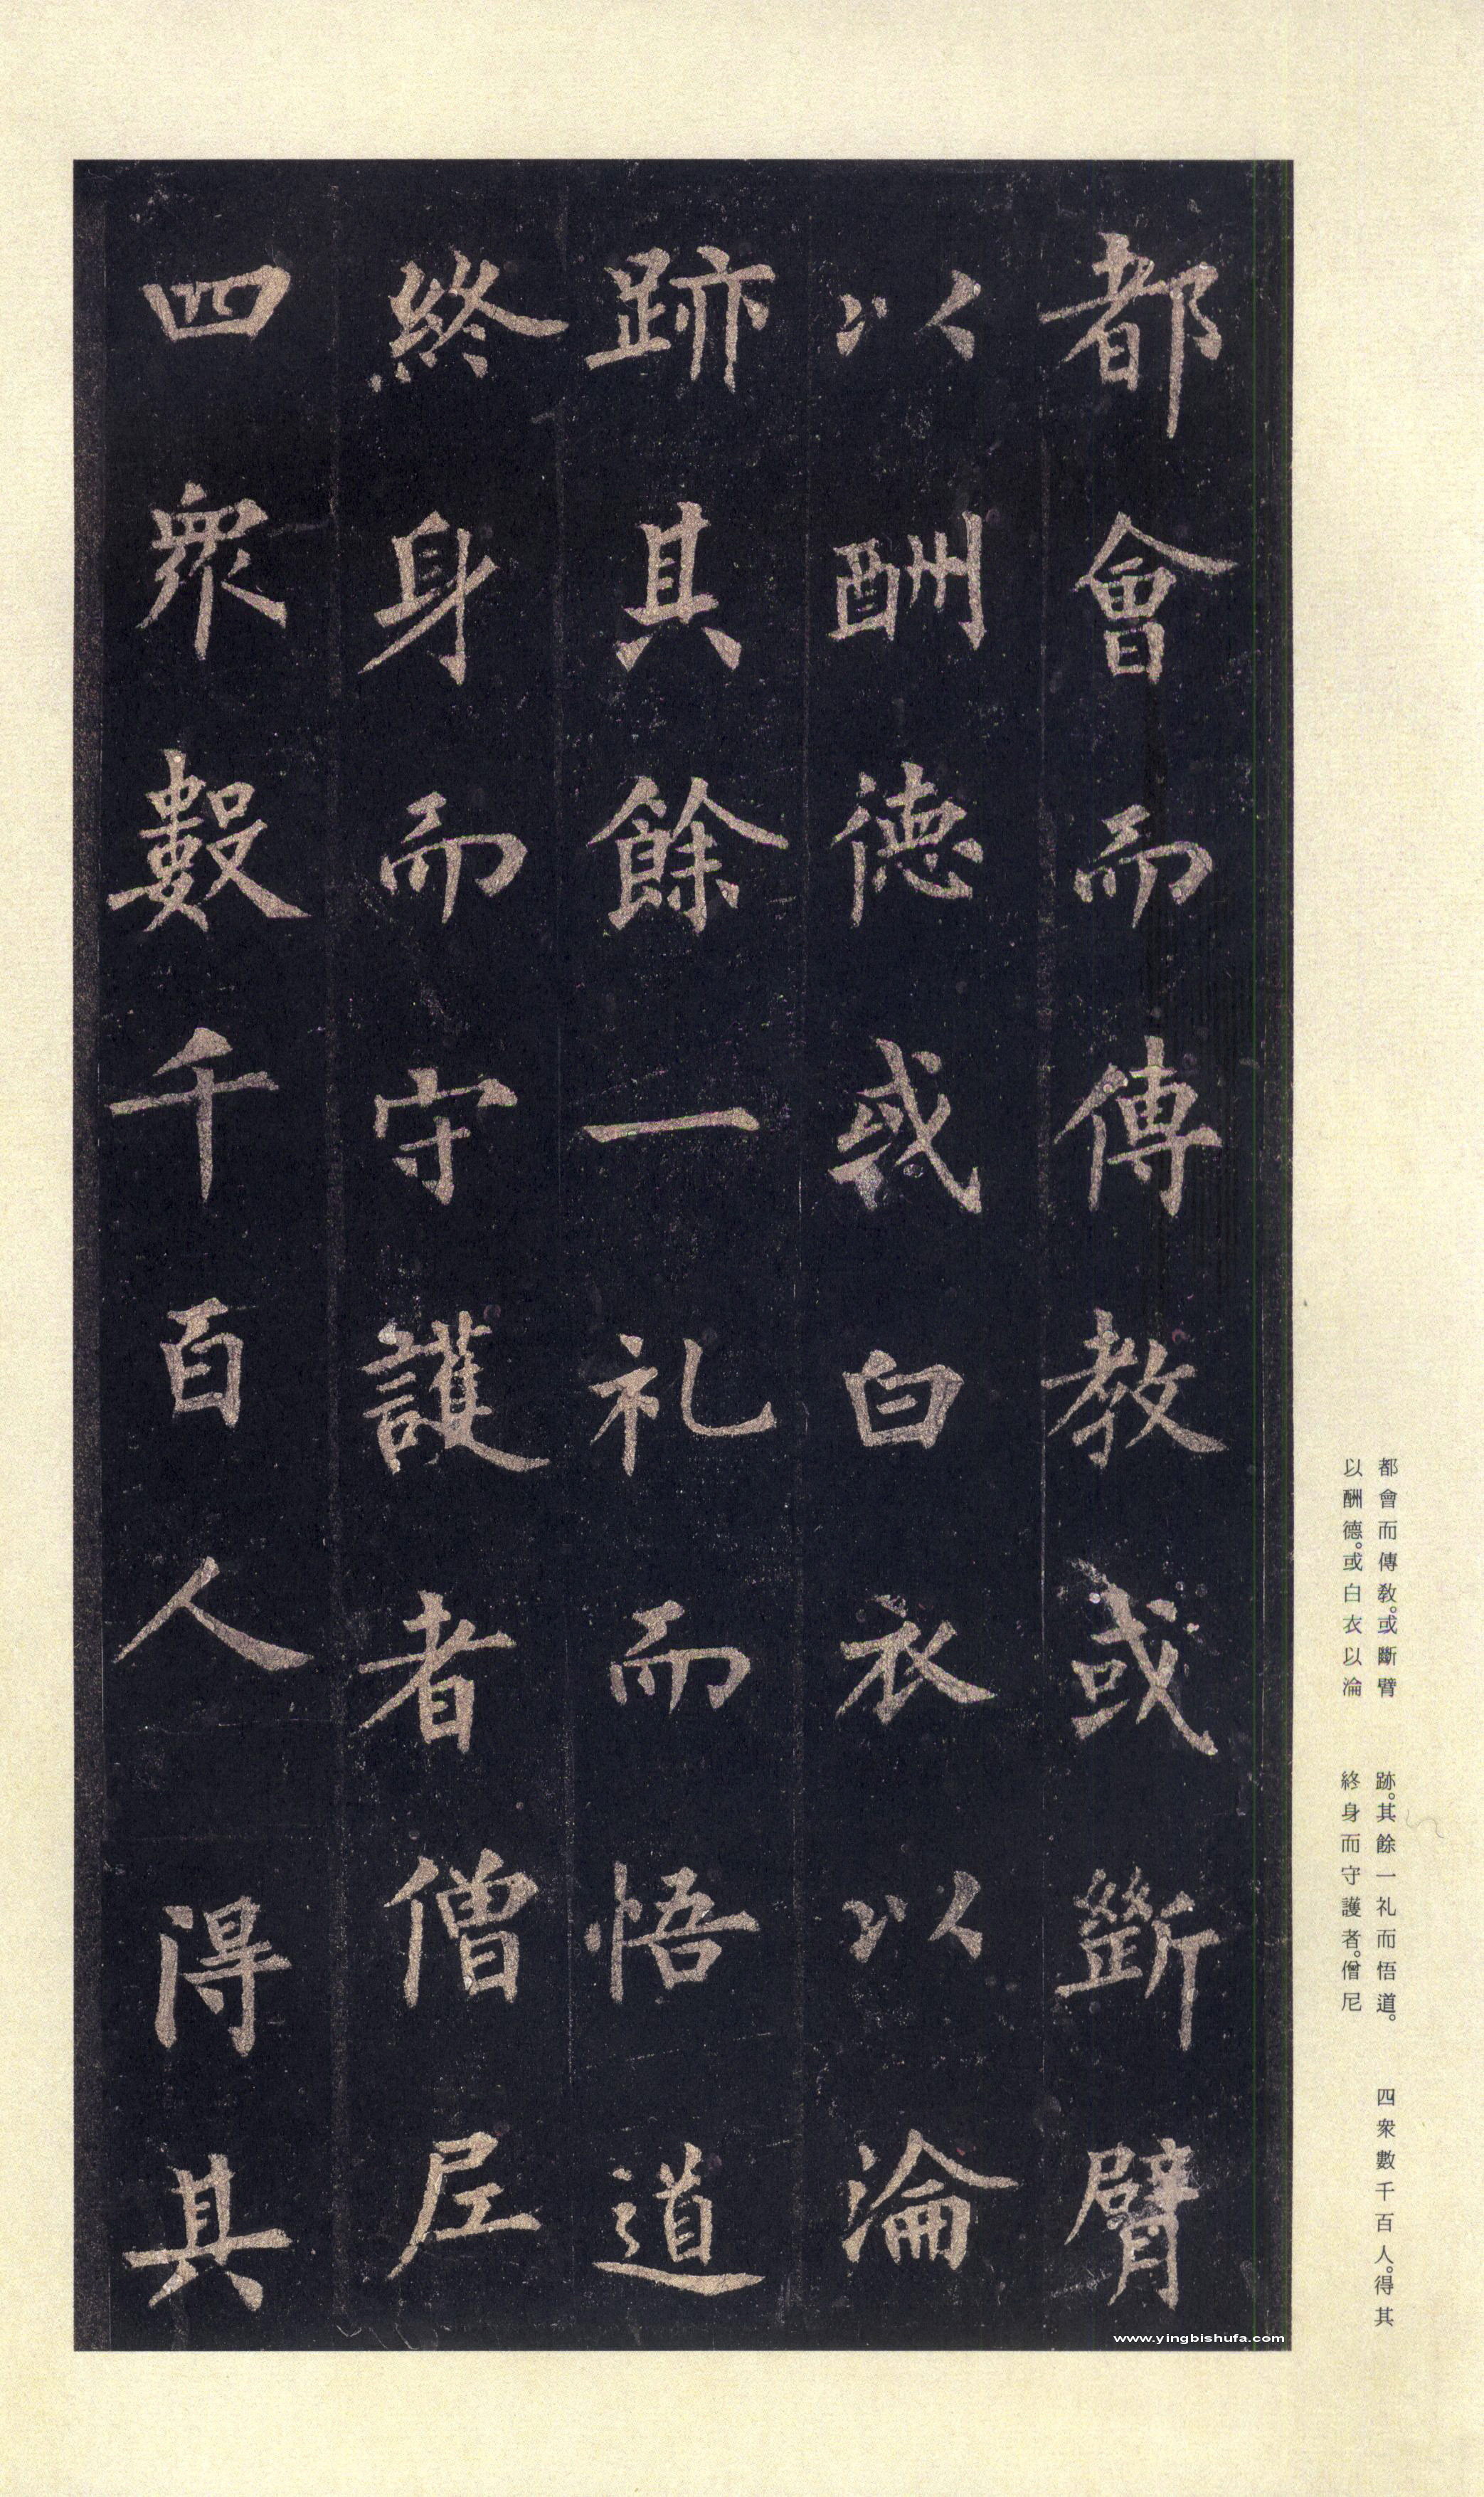 都會而傳教或斷臂
以酬德或白衣以淪
跡其餘一礼而悟道
終身而守護者僧尼
四衆數千百人得其
都會而傳教。或斷臂
以酬德。或白衣以淪
跡。其餘一礼而悟道。
終身而守護者。僧尼
四衆數千百人。得其
www.yingbishufa.com